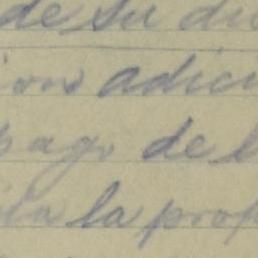 de su di
ion adici
pago de l
la la prop